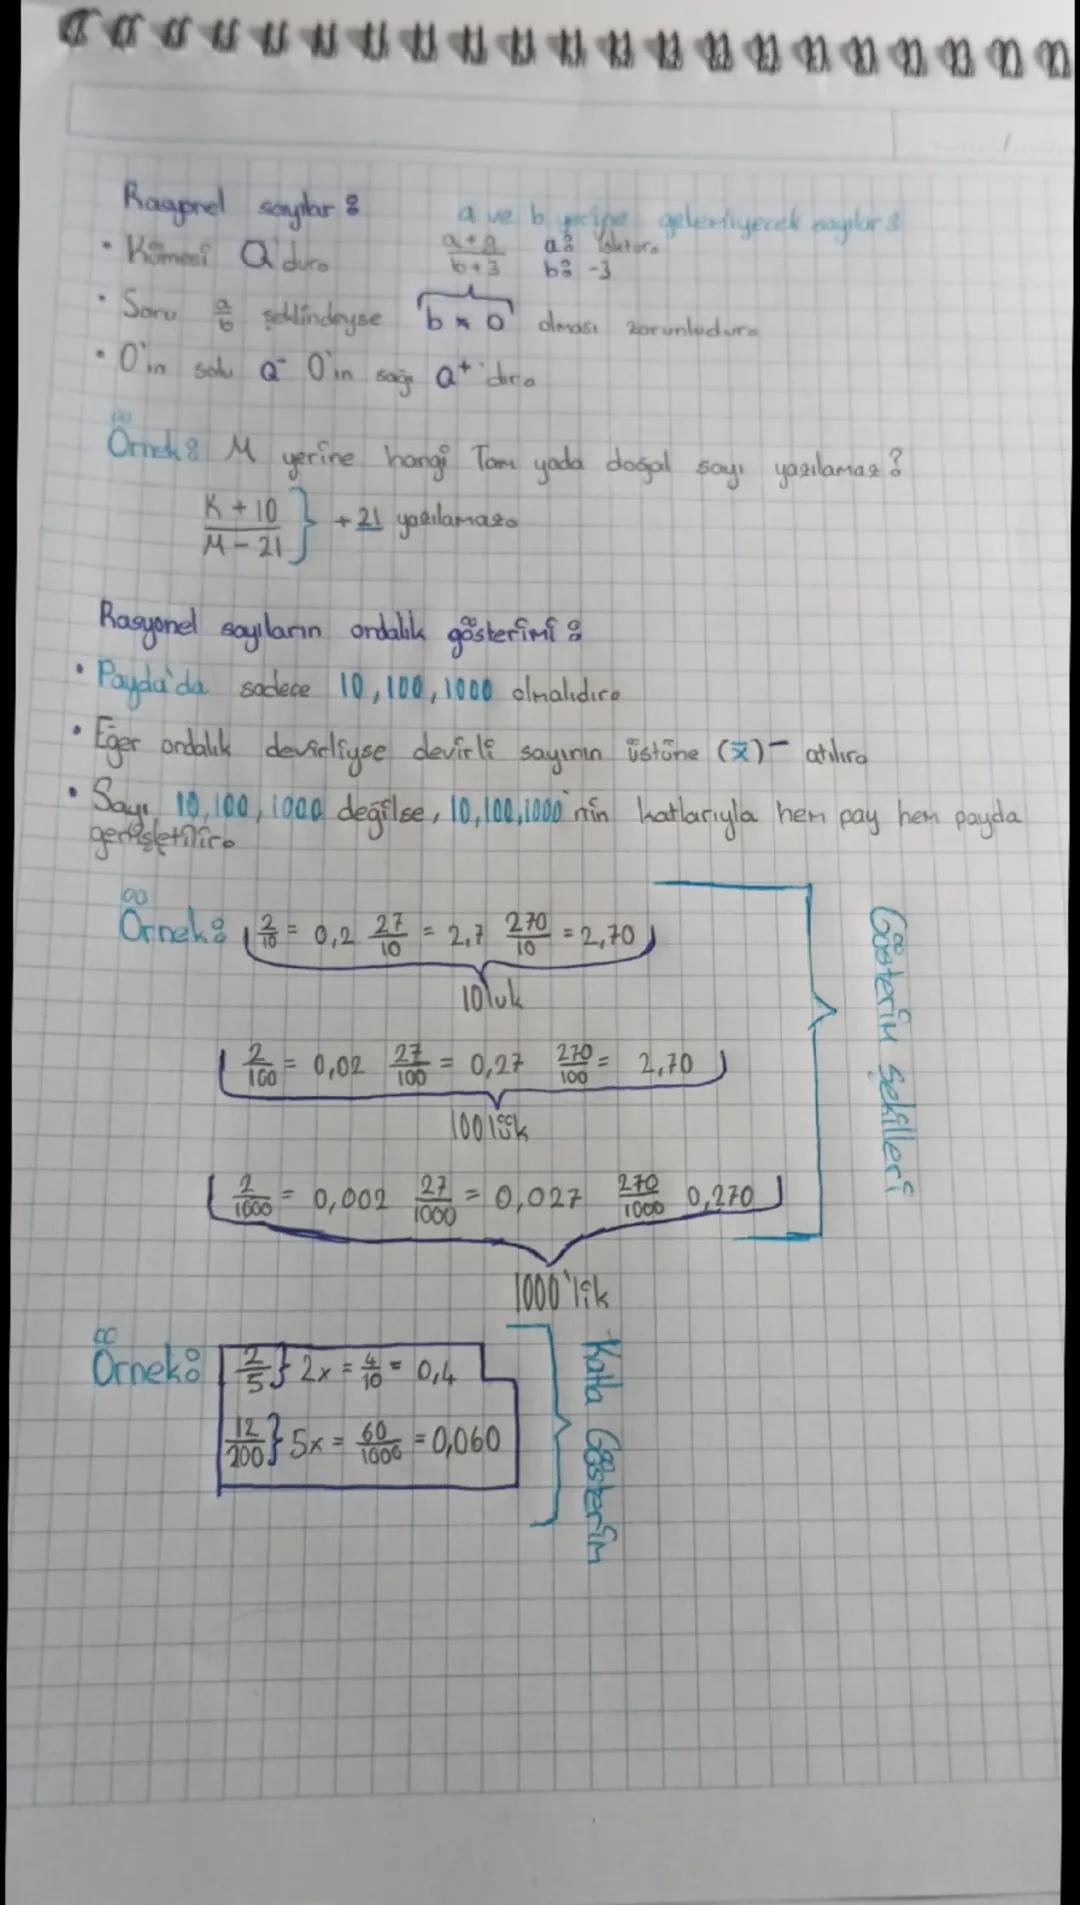 Rasyonel sayılar :
a ve b yerine gelemiyecek sayılar :
• Kümesi Q'dur.
a+2/b+3 a: Yoktur. b: -3
• Soru a/b şeklindeyse "b ≠ 0" olması zorunludur.
• 0'ın solu Q⁻ 0'ın sağı Q⁺'dır.
Örnek: M yerine hangi Tam yada doğal sayı yazılamaz?
K+10/M-21 } +21 yazılamaz.
Rasyonel sayıların ondalık gösterimi :
• Payda'da sadece 10, 100, 1000 olmalıdır.
• Eğer ondalık devirliyse devirli sayının üstüne (x̄) - atılır.
• Sayı 10, 100, 1000 değilse, 10, 100, 1000'nin katlarıyla hem pay hem payda
genişletilir.
Örnek: 2/10 = 0,2 27/10 = 2,7 270/10 = 2,70
10'luk
2/100 = 0,02 27/100 = 0,27 270/100 = 2,70
100'lük
2/1000 = 0,002 27/1000 = 0,027 270/1000 0,270
1000'lik
Gösterim Şekilleri
Örnek: 2/5 } 2x = 4/10 = 0,4
12/200 } 5x = 60/1000 = 0,060
Katla Gösterim